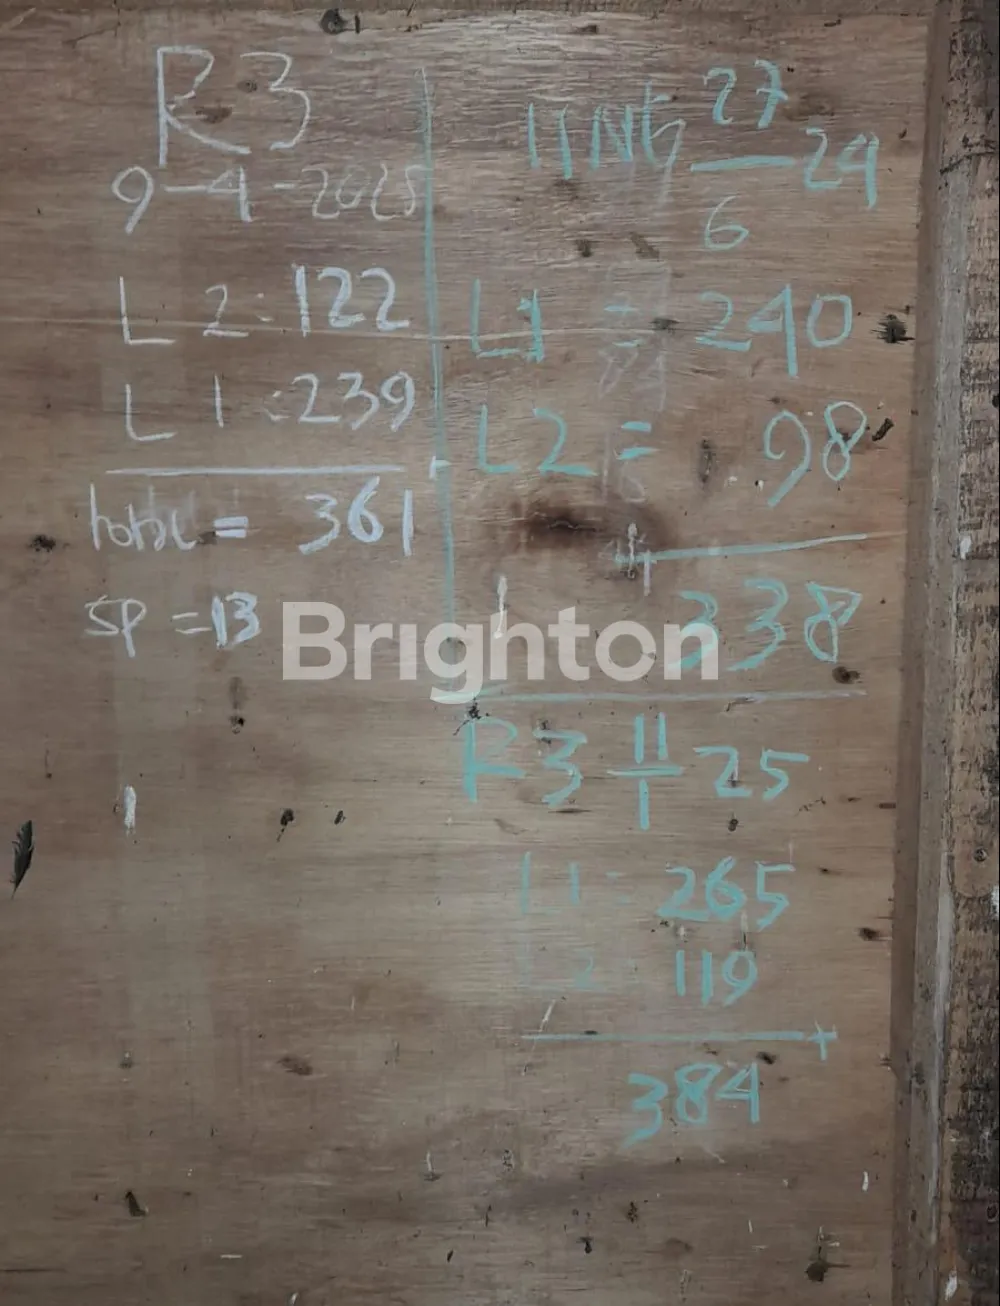 R3
9-4-2025
L 2: 122
L 1: 239
total = 361
SP = 13
27
6
24
L1 = 240
L2 = 98
338
R3 11/1 25
L1: 265
L2: 119
+
384
Brighton